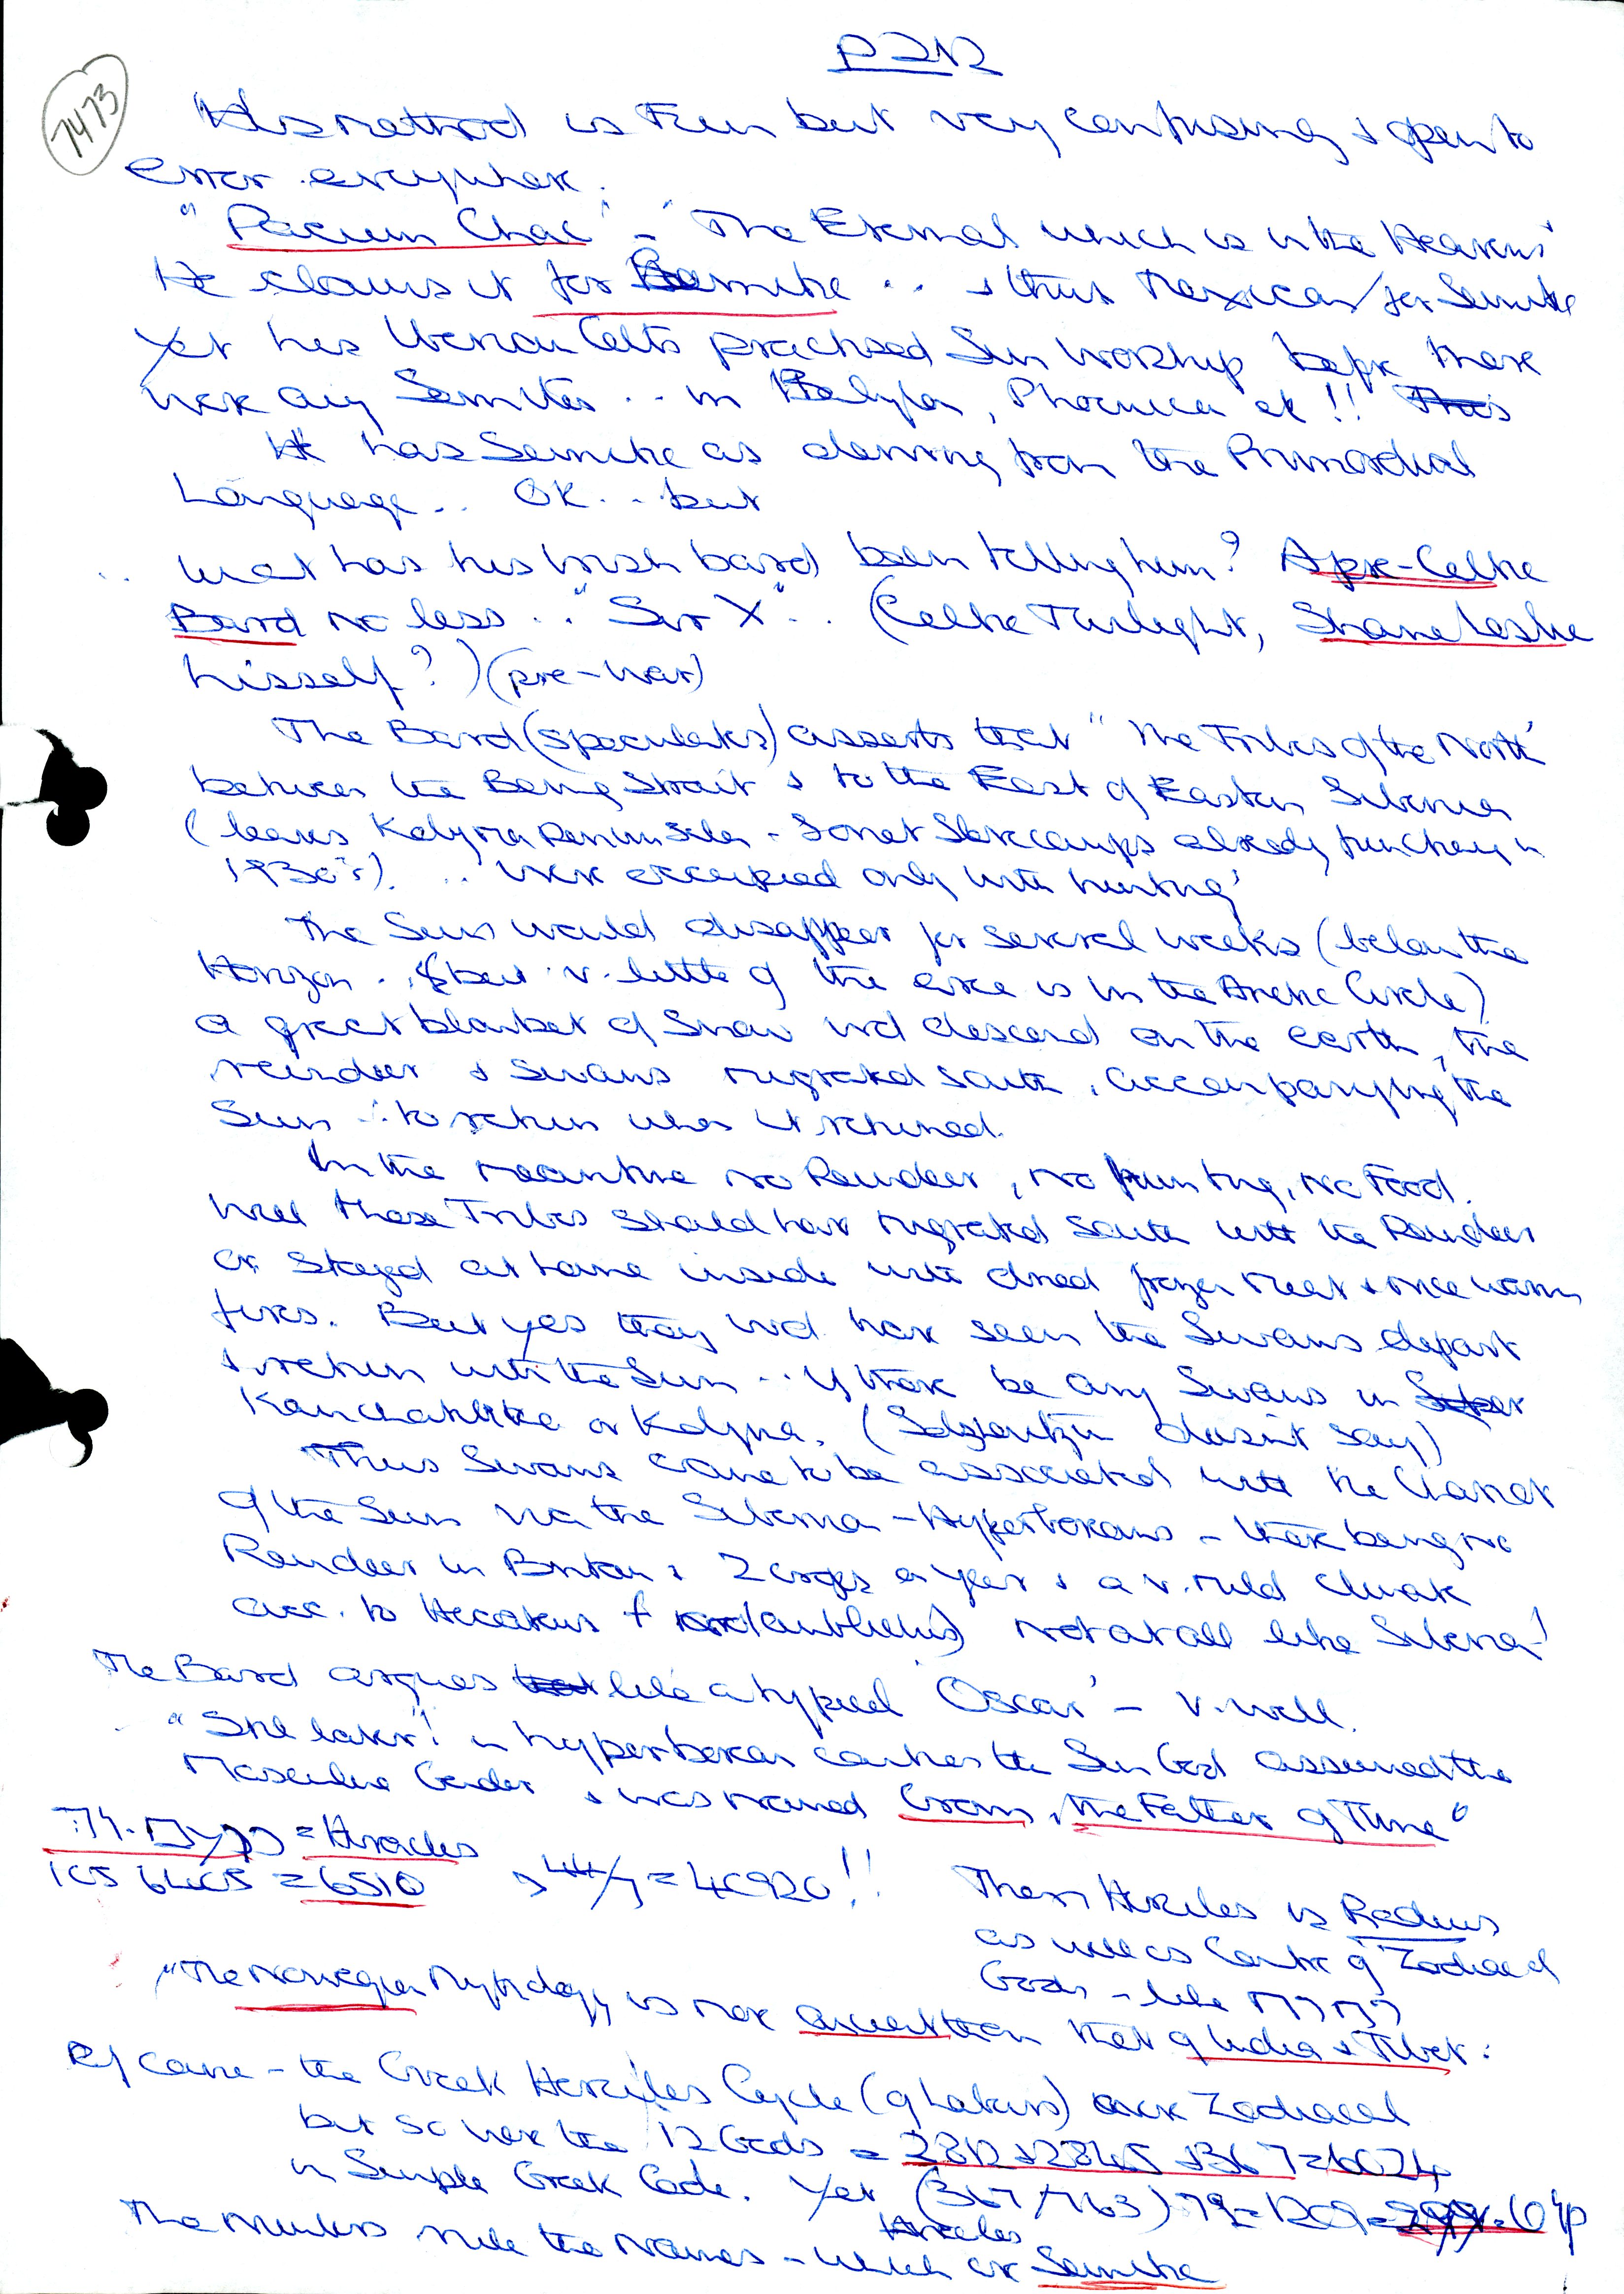 7473
This method is Fun but very confusing & open to
error everywhere.
"Pacum Chac" - 'The Eternal which is in the Heavens'
He claims it for Semitic .. & thus Mexican for Semitic
Yet his Iberian Celts practised Sun Worship before there
were any Semites .. in Babylon, Phoenicia et !! This
He has Semitic as deriving from the Primordial
Language .. OK .. but
.. what has his Irish bard been telling him? A pre-Celtic
Bard no less .. "Sir X" .. (Celtic Twilight, Shane Leslie
hisself?) (pre-war)
The Bard (speculates) asserts that "the Tribes of the North
between the Bering Strait & to the East of Eastern Siberia
(leaves Kolyma Peninsula - Soviet Slave camps already functiong in
1930's) .. were occupied only with hunting'
The Sun would disappear for several weeks (below the
Horizon . but v. little of the area is in the Arctic Circle)
a great blanket of Snow wd descend on the earth, the
reindeer & Swans migrated south, accompanying the
Sun .. to return when it returned.
In the meantime no Reindeer, no hunting, no Food.
Well those Tribes should have migrated South with the Reindeer
or stayed at home inside with dried frozen meat & nice warm
fires. But yes they wd. have seen the Swans depart
& return with the Sun .. if there be any Swans in
Kamchatka or Kolyma. (Solzhenitzin doesn't say)
Thus Swans came to be associated with the Chariot
of the Sun via the Siberian - Hyperboreans - there being no
Reindeer in Britain & 2 crops a year & a v. mild climate
acc. to Hecateus not at all like Siberia!
The Bard argues like a typical 'Oscar' - v. well.
"Still later" in hyperborean countries the Sun God assumed the
Masculine Gender & was named Cronos, the Father of Time"
= Heracles
= 6510 44/7 = 40920!!
Then Hercules is Radius
as well as Centre of Zodiacal
Gods - like
"The Norwegian Mythology is more ancient than that of India & Tibet.
Of course - the Greek Hercules Cycle (of Labours) were Zodiacal
but so were the 12 Gods = 2812 + 2845 + 367 = 6024
in Simple Greek Code. Yet (367 / 763)
The numbers rule the Names - which are Semitic
Heracles